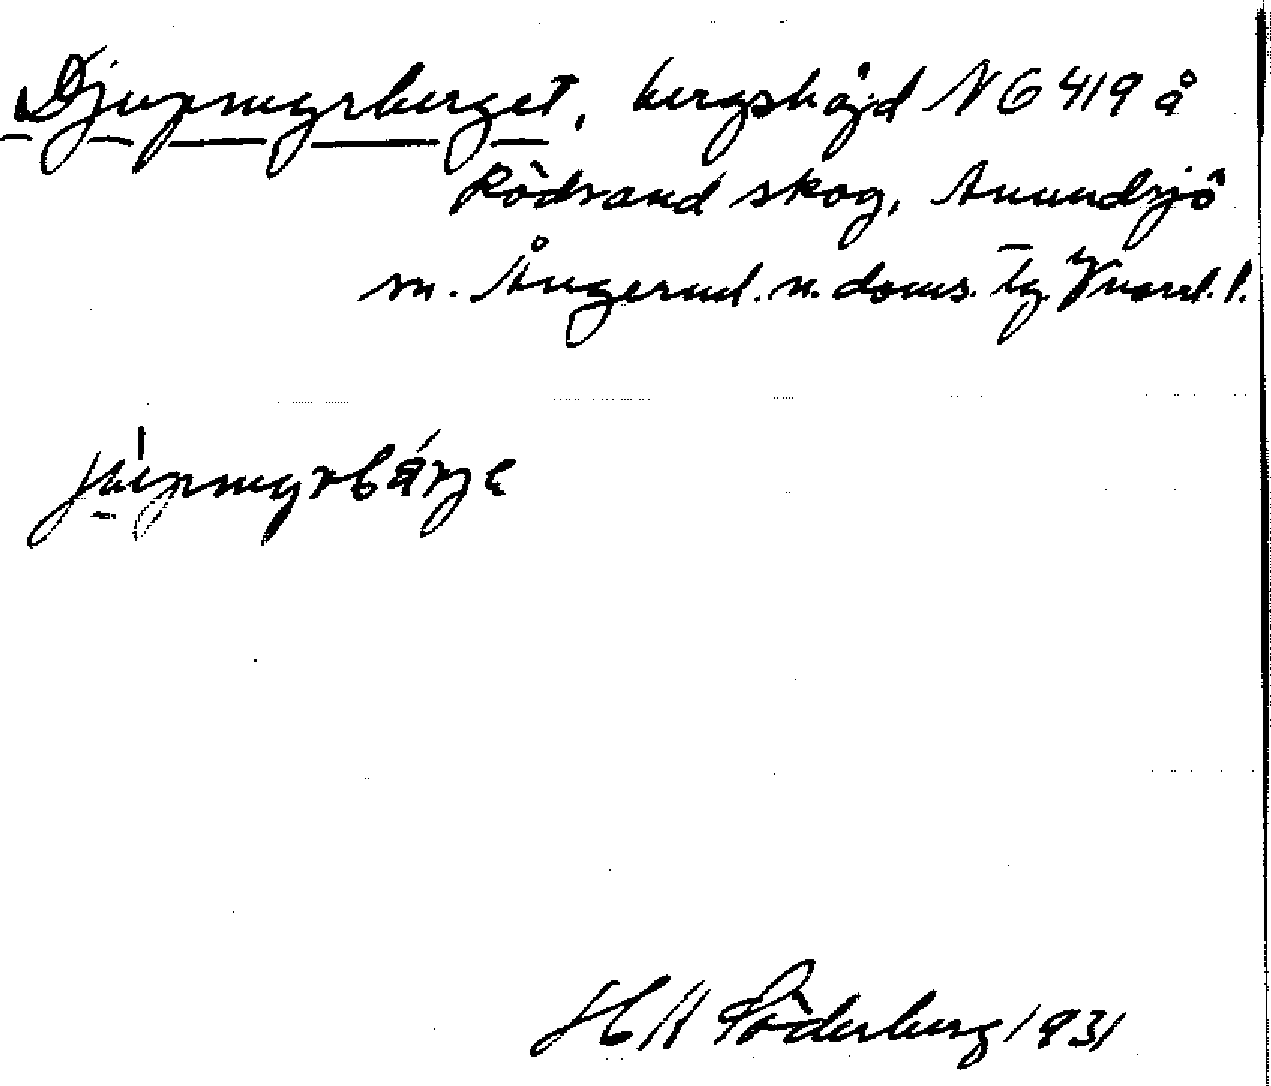 Djupmyrberget, bergshöjd N 6 419 å
Rödvand skog, Anundsjö
sn. Ångerml. n. doms. tg Vnorrl. l.
júpmyrbárje
H Söderberg 1931